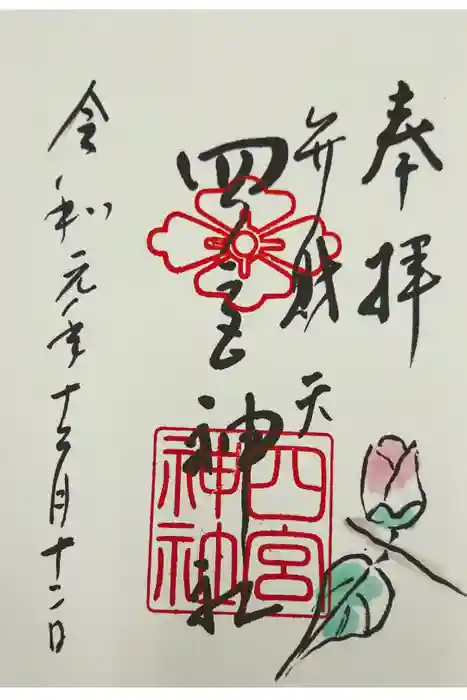 奉拝
弁財天
四宮神社
四宮
神社
令和元年十二月十二日